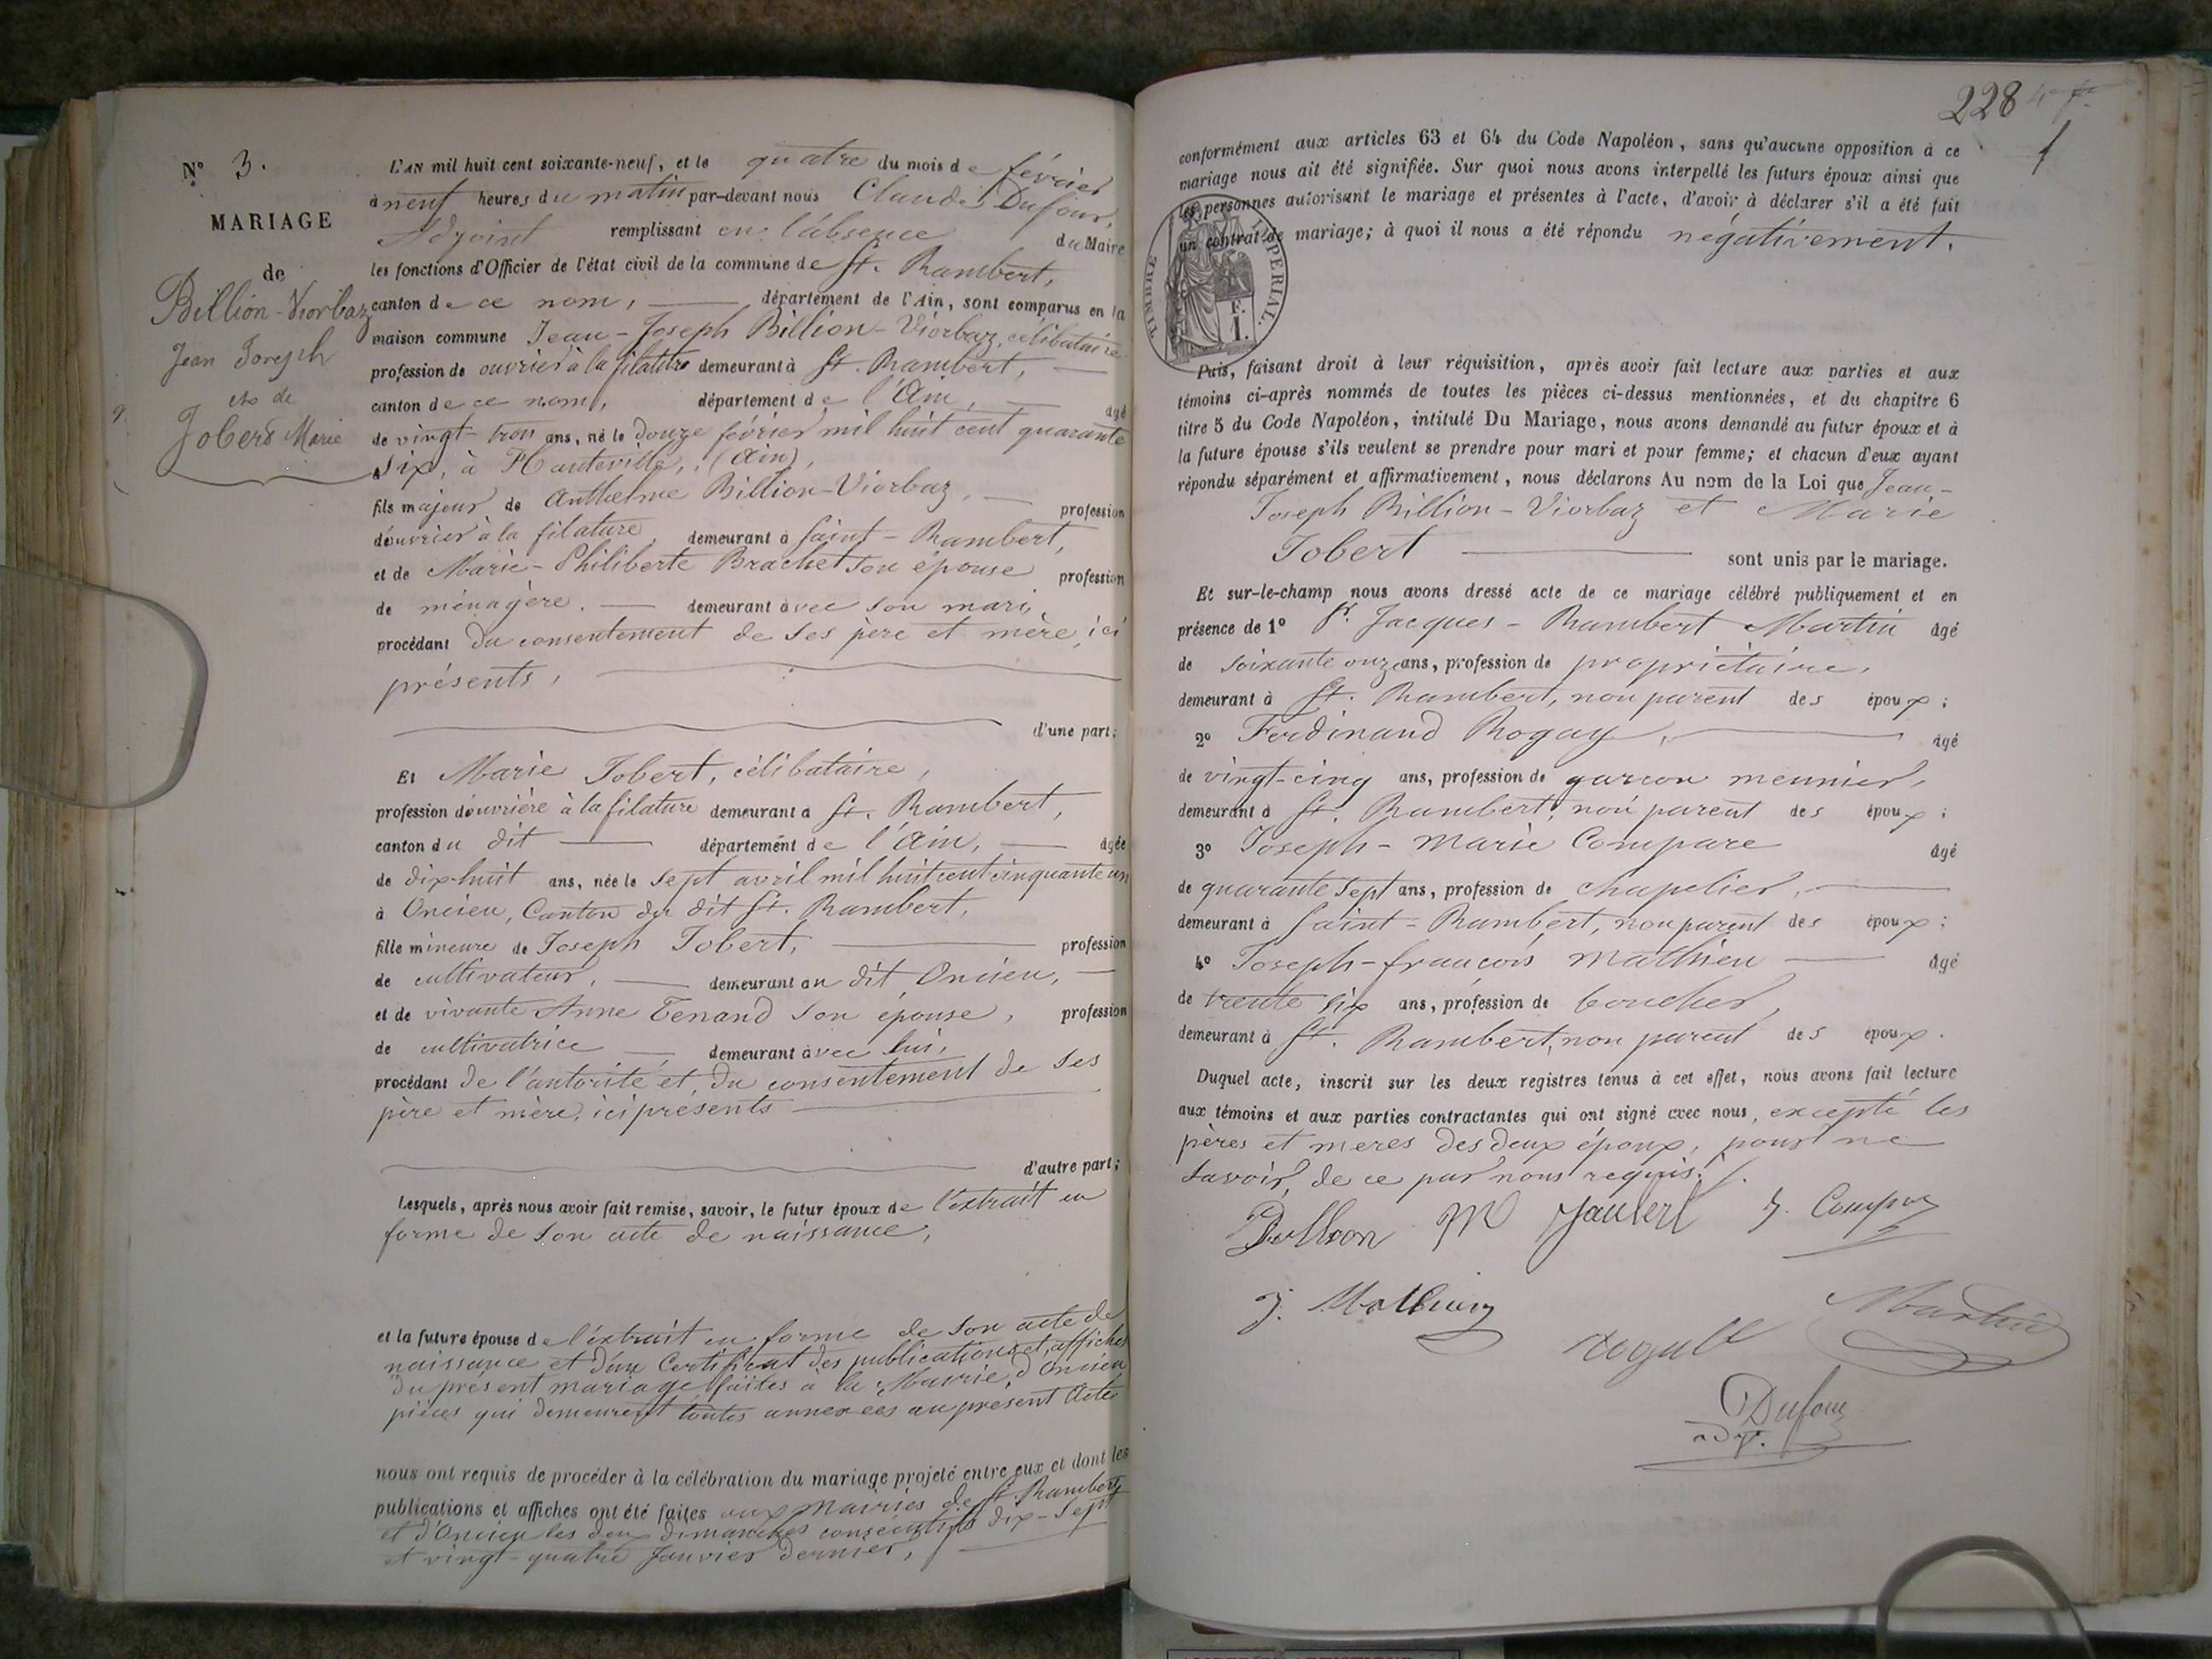 N° 3.
MARIAGE
de
Billion-Viorbaz
Jean Joseph
et de
Jobert Marie
L'AN mil huit cent soixante-neuf, et le quatre du mois de février
à neuf heures du matin par-devant nous Claude Dufour,
Adjoint remplissant en l'absence du Maire
les fonctions d'Officier de l'état civil de la commune de St. Rambert,
canton de ce nom, département de l'Ain, sont comparus en la
maison commune Jean-Joseph Billion-Viorbaz, célibataire
profession de ouvrier à la filature demeurant à St. Rambert,
canton de ce nom, département de l'Ain, âgé
de vingt-trois ans, né le douze février mil huit cent quarante
six, à Hauteville, (Ain),
fils majeur de Anthelme Billion-Viorbaz, profession
d'ouvrier à la filature, demeurant à Saint-Rambert,
et de Marie-Philiberte Brachet son épouse profession
de ménagère. demeurant avec son mari,
procédant du consentement de ses père et mère, ici
présents,
d'une part;
Et Marie Jobert, célibataire,
profession d'ouvrière à la filature demeurant à St. Rambert,
canton du dit département de l'Ain, âgée
de dix-huit ans, née le sept avril mil huit cent cinquante un
à Oncieu, Canton du dit St. Rambert,
fille mineure de Joseph Jobert, profession
de cultivateur, demeurant au dit Oncieu,
et de vivante Anne Tenand son épouse, profession
de cultivatrice demeurant avec lui,
procédant de l'autorité et du consentement de ses
père et mère, ici présents
d'autre part;
Lesquels, après nous avoir fait remise, savoir, le futur époux de l'extrait en
forme de son acte de naissance,
et la future épouse de l'extrait en forme de son acte de
naissance et d'un Certificat des publications et affiches
du présent mariage faites à la Mairie d'Oncieu
pièces qui demeurent toutes annexées au présent Acte
nous ont requis de procéder à la célébration du mariage projeté entre eux et dont les
publications et affiches ont été faites aux Mairies de St. Rambert
et d'Oncieu les deux dimanches consécutifs dix-sept
et vingt-quatre Janvier dernier,
228
conformément aux articles 63 et 64 du Code Napoléon, sans qu'aucune opposition à ce
mariage nous ait été signifiée. Sur quoi nous avons interpellé les futurs époux ainsi que
les personnes autorisant le mariage et présentes à l'acte, d'avoir à déclarer s'il a été fait
un contrat de mariage; à quoi il nous a été répondu négativement.
TIMBRE IMPERIAL.
F.
1.
Puis, faisant droit à leur réquisition, après avoir fait lecture aux parties et aux
témoins ci-après nommés de toutes les pièces ci-dessus mentionnées, et du chapitre 6
titre 5 du Code Napoléon, intitulé Du Mariage, nous avons demandé au futur époux et à
la future épouse s'ils veulent se prendre pour mari et pour femme; et chacun d'eux ayant
répondu séparément et affirmativement, nous déclarons Au nom de la Loi que Jean-
Joseph Billion-Viorbaz et Marie
Jobert sont unis par le mariage.
Et sur-le-champ nous avons dressé acte de ce mariage célébré publiquement et en
présence de 1° Sr. Jacques-Rambert Martin âgé
de soixante onze ans, profession de propriétaire,
demeurant à St. Rambert, non parent des époux;
2° Ferdinand Rogay, âgé
de vingt-cinq ans, profession de garçon meunier,
demeurant à St. Rambert, non parent des époux;
3° Joseph-Marie Compare âgé
de quarante sept ans, profession de chapelier,
demeurant à Saint-Rambert, non parent des époux:
4° Joseph-françois Mathieu âgé
de trente six ans, profession de boucher,
demeurant à St. Rambert, non parent des époux.
Duquel acte, inscrit sur les deux registres tenus à cet effet, nous avons fait lecture
aux témoins et aux parties contractantes qui ont signé avec nous, excepté les
pères et meres des deux époux, pour ne
savoir, de ce par nous requis.
J. Mathieu
Martin
Dufour
adjt.